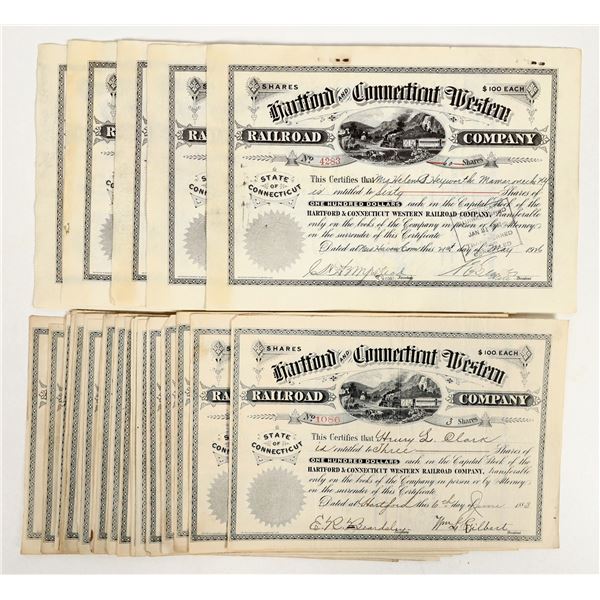 SHARES $100 EACH
Hartford AND Connecticut Western
RAILROAD COMPANY
No 4283 60 Shares
STATE OF CONNECTICUT
This Certifies that Mrs Helen S Heyworth Mamaroneck NY
is entitled to Sixty Shares of
ONE HUNDRED DOLLARS each in the Capital Stock of the
HARTFORD & CONNECTICUT WESTERN RAILROAD COMPANY, transferable
only on the books of the Company in person or by Attorney
on the surrender of this Certificate
Dated at New Haven Conn this day of May
SHARES $100 EACH
Hartford AND Connecticut Western
RAILROAD COMPANY
No 1086 3 Shares
STATE OF CONNECTICUT
This Certifies that Henry L. Clark
is entitled to Three Shares of
ONE HUNDRED DOLLARS each in the Capital Stock of the
HARTFORD & CONNECTICUT WESTERN RAILROAD COMPANY, transferable
only on the books of the Company in person or by Attorney
on the surrender of this Certificate
Dated at Hartford this 6th day of June 1883
E. R. Beardsley Wm L Gilbert